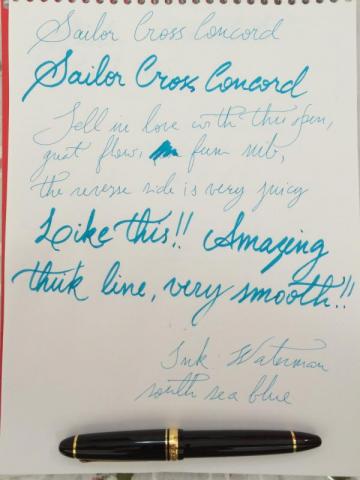 Sailor Cross Concord
Sailor Cross Concord
Fell in love with this pen,
great flow, firm nib,
the reverse side is very juicy
Like this!! Amazing
thick line, very smooth!!
Ink Waterman
south sea blue